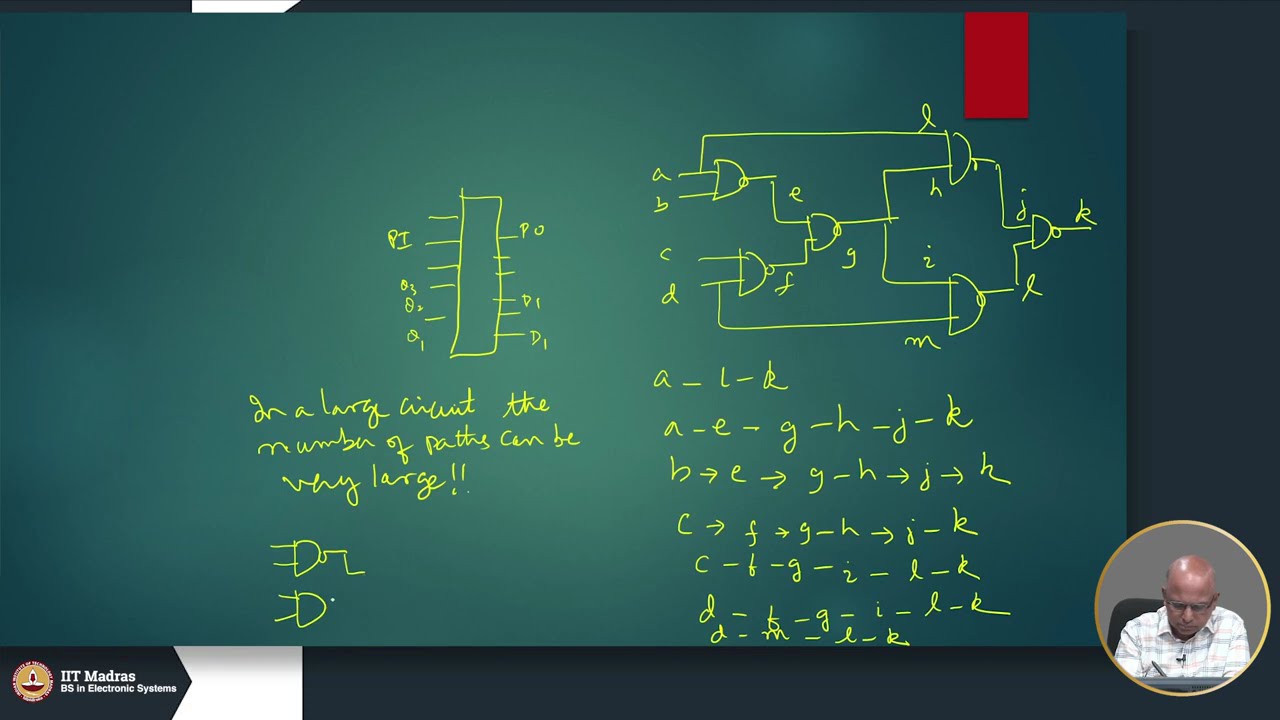 PI
PO
Q3
Q2
Q1
D1
D1
In a large circuit the
number of paths can be
very large!!
l
a
b
e
h
j
k
c
d
f
g
i
l
m
a - l - k
a - e - g - h - j - k
b → e → g - h → j → k
c → f → g - h → j - k
c - f - g - i - l - k
d - f - g - i - l - k
d - m - l - k
IIT Madras
BS in Electronic Systems